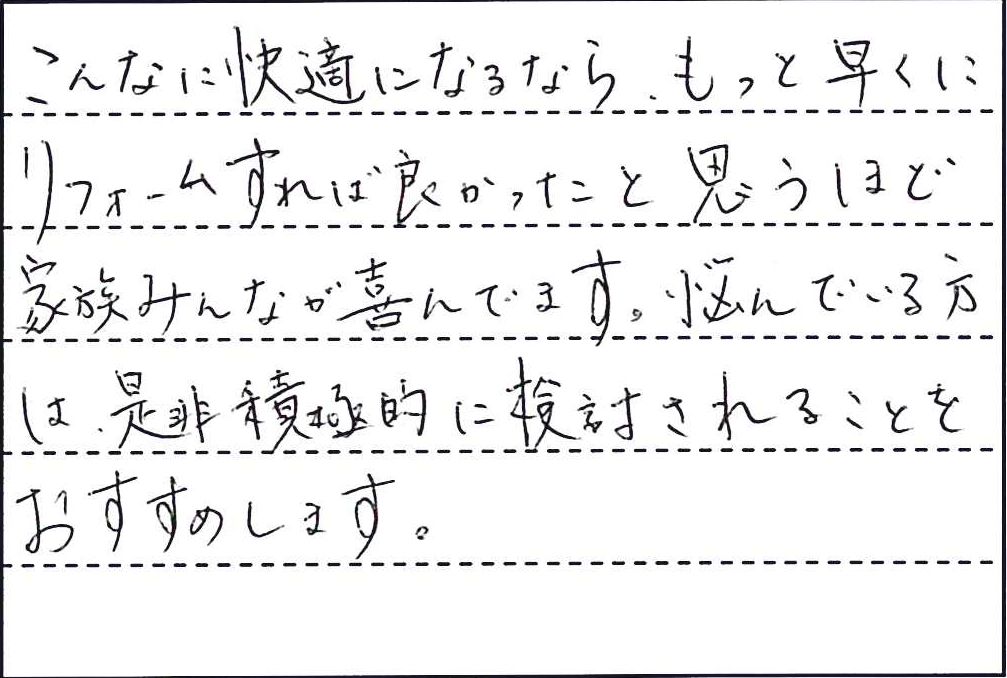 こんなに快適になるなら、もっと早くに
リフォームすれば良かったこと思うほど
家族みんなが喜んでます。悩んでいる方
は、是非積極的に検討されることを
おすすめします。